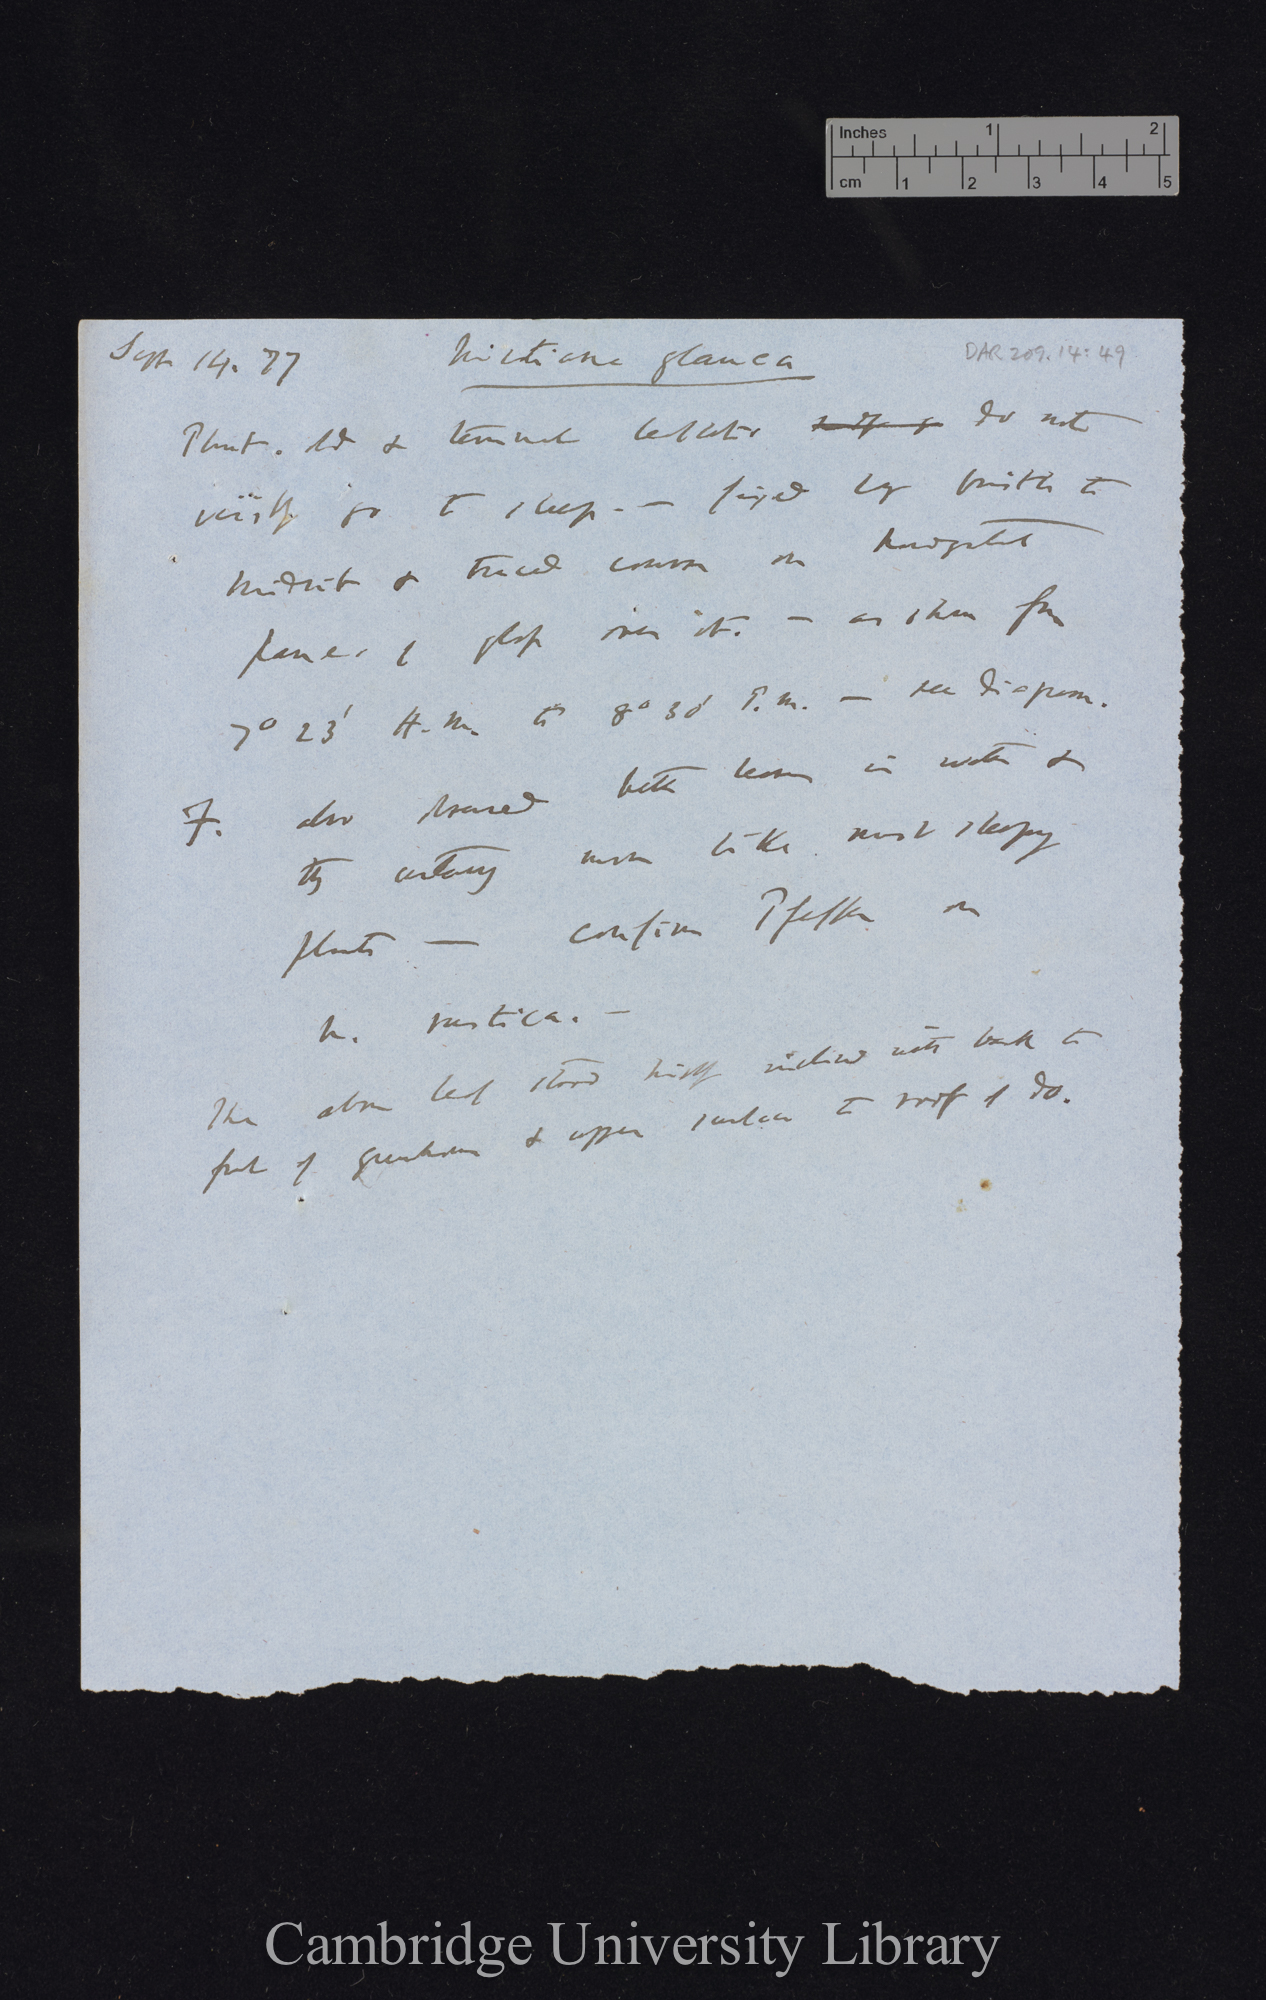 Inches 1 2
cm 1 2 3 4 5
Sept 14. 77 Nicotiana glauca DAR 209.14:49
Plant. old & terminal leaflets do not
visibly go to sleep. — fixed by bristle to
midrib & traced course on
panes of glass over it. — as shown from
7° 23' A.M. to 8° 30' P.M. — see Diagram.
F. also traced both leaves in water &
they certainly move like most sleepy
plants — confirm Pfeffer on
N. rustica. —
The above leaf stood highly inclined with back to
front of greenhouse & upper surface to roof of do.
Cambridge University Library